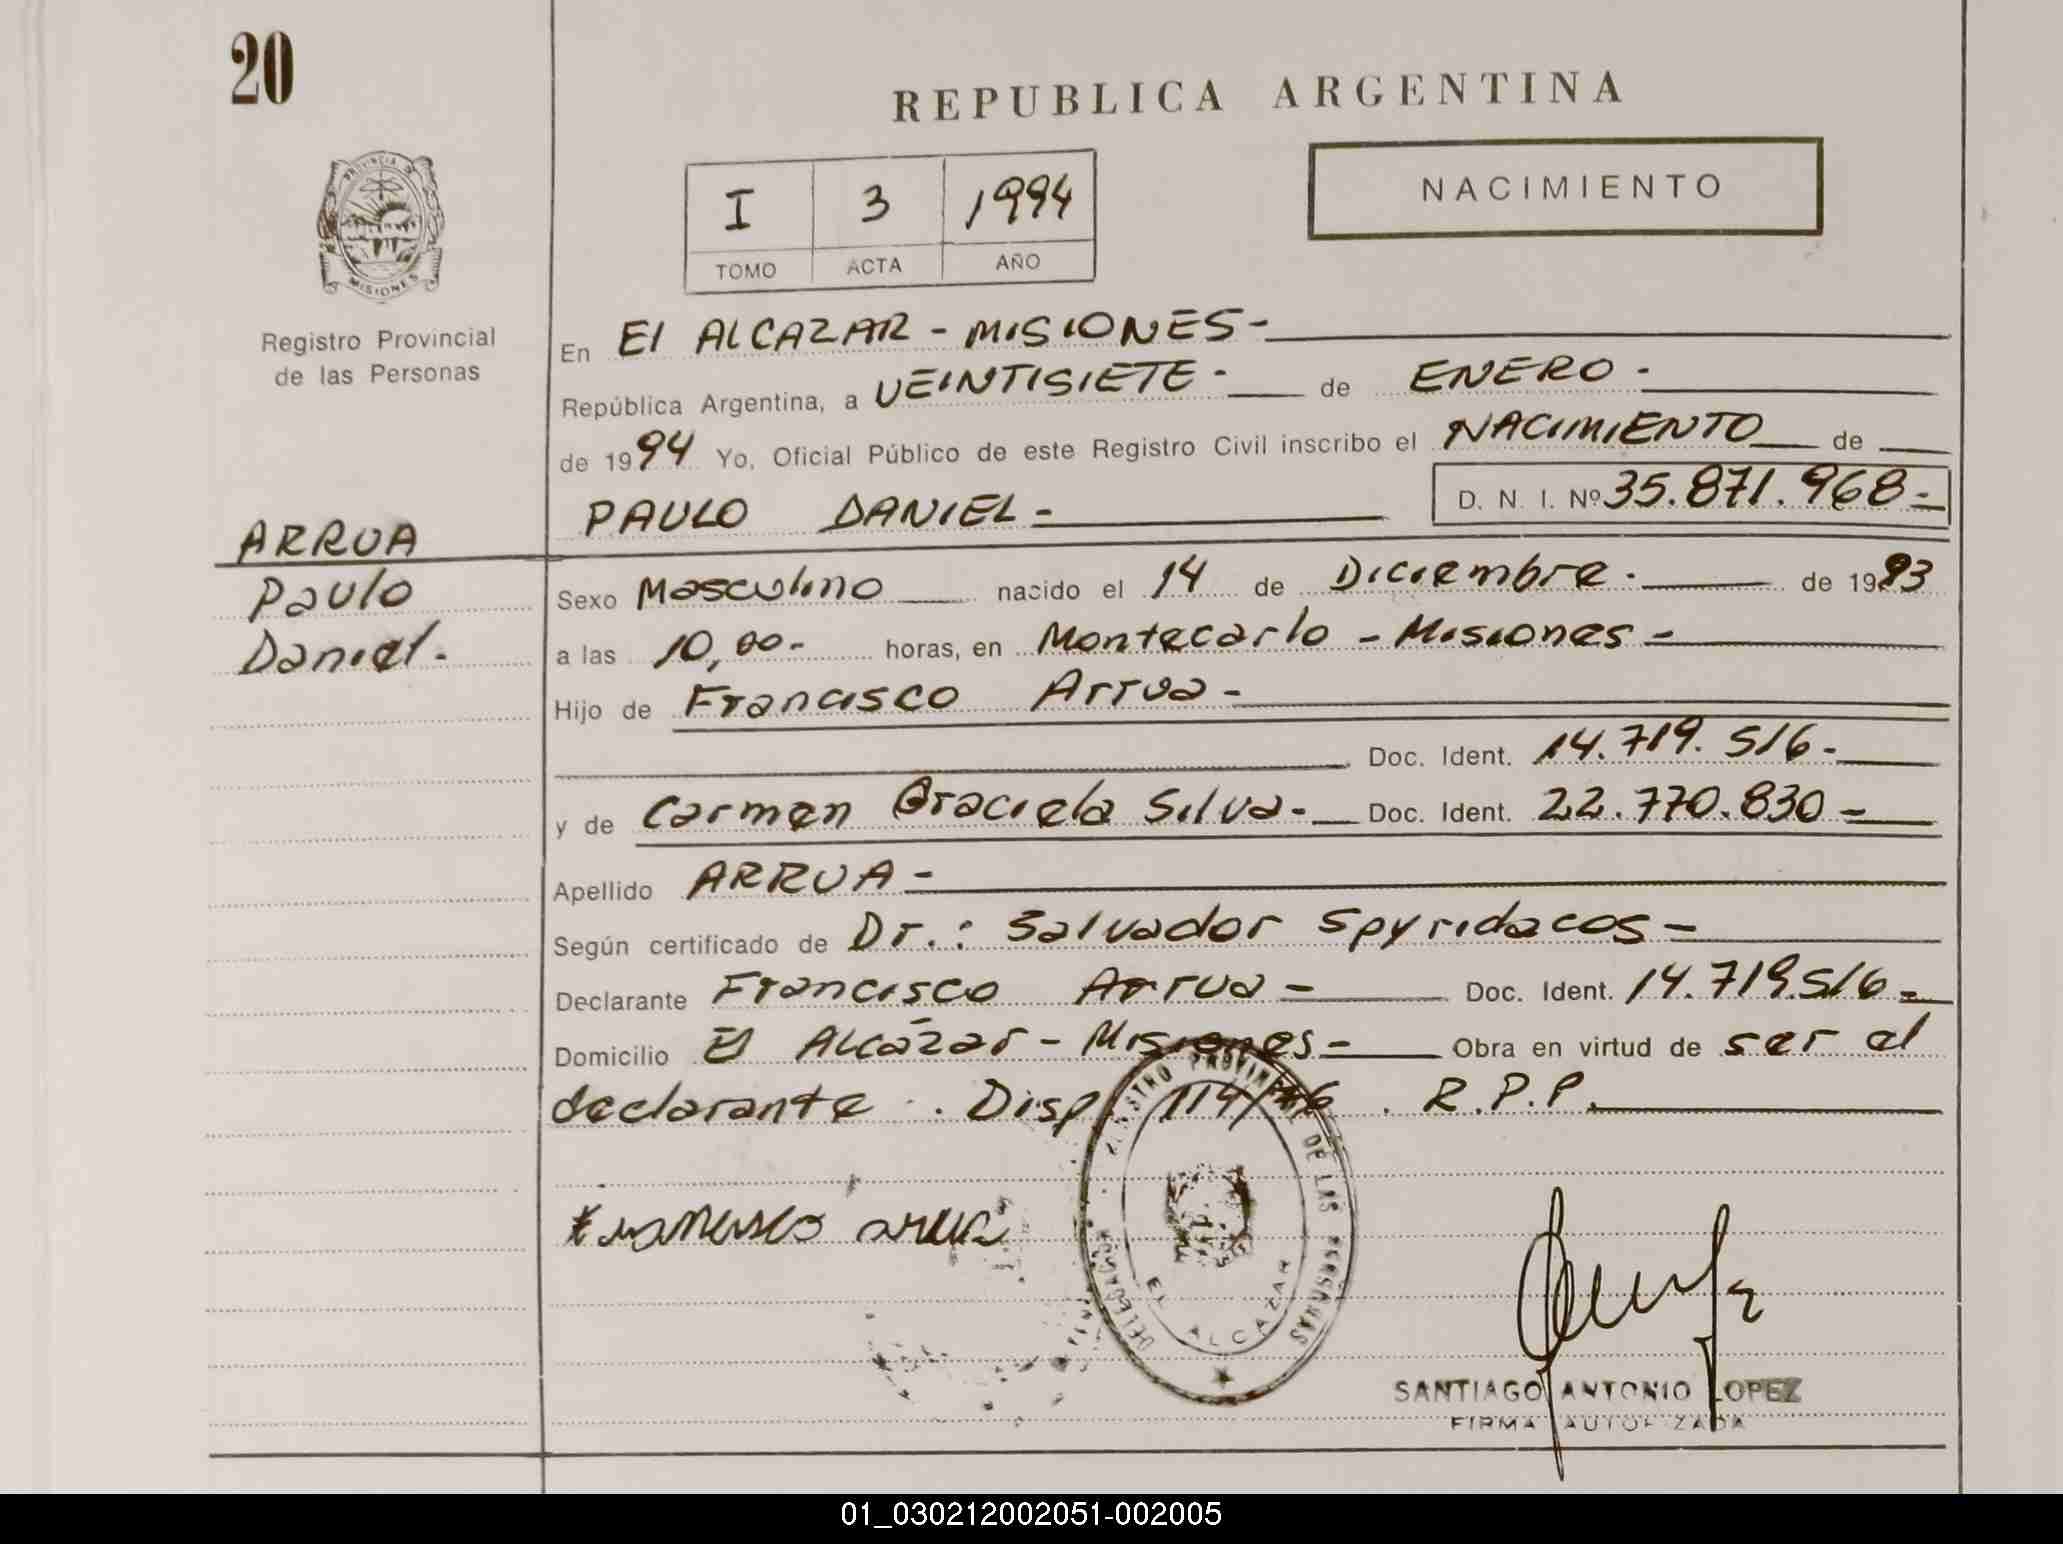 20
REPUBLICA ARGENTINA
PROVINCIA DE
MISIONES
I 3 1994
TOMO ACTA AÑO
NACIMIENTO
Registro Provincial
de las Personas
En El ALCAZAR - MISIONES -
República Argentina, a VEINTISIETE - de ENERO -
de 1994 Yo, Oficial Público de este Registro Civil inscribo el NACIMIENTO de
PAULO DANIEL - D. N. I. Nº 35.871.968 -
ARRUA
Paulo
Daniel.
Sexo Masculino nacido el 14 de Diciembre. de 1993
a las 10,00- horas, en Montecarlo - Misiones -
Hijo de Francisco Arrua -
Doc. Ident. 14.719.516-
y de Carmen Graciela Silva- Doc. Ident. 22.770.830 -
Apellido ARRUA -
Según certificado de Dr.: Salvador Spyridacos -
Declarante Francisco Arrua - Doc. Ident. 14.719.516 -
Domicilio El Alcázar - Misiones - Obra en virtud de ser el
declarante . Disp. 114/76 . R.P.P.
Francisco arrua
REGISTRO PROVINCIAL DE LAS PERSONAS
DELEGACION
EL ALCAZAR
SANTIAGO ANTONIO LOPEZ
FIRMA AUTORIZADA
01_030212002051-002005